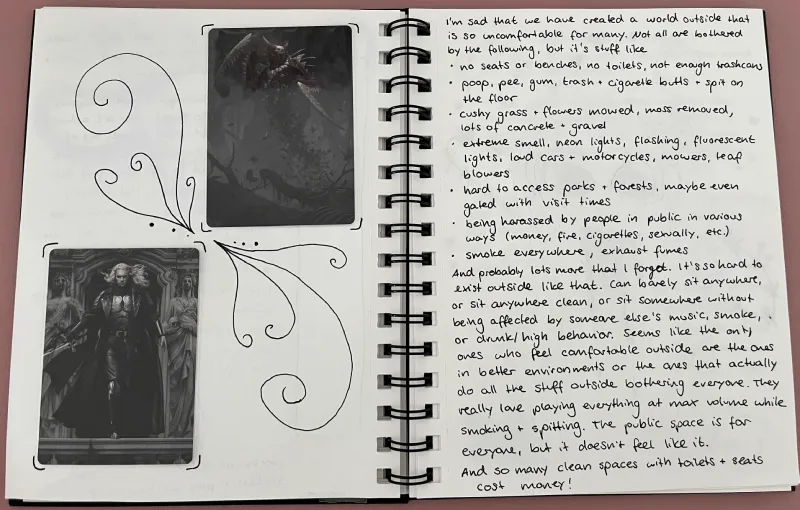 I'm sad that we have created a world outside that
is so uncomfortable for many. Not all are bothered
by the following, but it's stuff like
· no seats or benches, no toilets, not enough trashcans
· poop, pee, gum, trash + cigarette butts + spit on
the floor
· cushy grass + flowers mowed, moss removed,
lots of concrete + gravel
· extreme smell, neon lights, flashing, fluorescent
lights, loud cars + motorcycles, mowers, leaf
blowers
· hard to access parks + forests, maybe even
gated with visit times
· being harassed by people in public in various
ways (money, fire, cigarettes, sexually, etc.)
· smoke everywhere, exhaust fumes
And probably lots more that I forget. It's so hard to
exist outside like that. Can barely sit anywhere,
or sit anywhere clean, or sit somewhere without
being affected by someone else's music, smoke,
or drunk/high behavior. Seems like the only
ones who feel comfortable outside are the ones
in better environments or the ones that actually
do all the stuff outside bothering everyone. They
really love playing everything at max volume while
smoking + spitting. The public space is for
everyone, but it doesn't feel like it.
And so many clean spaces with toilets + seats
cost money!